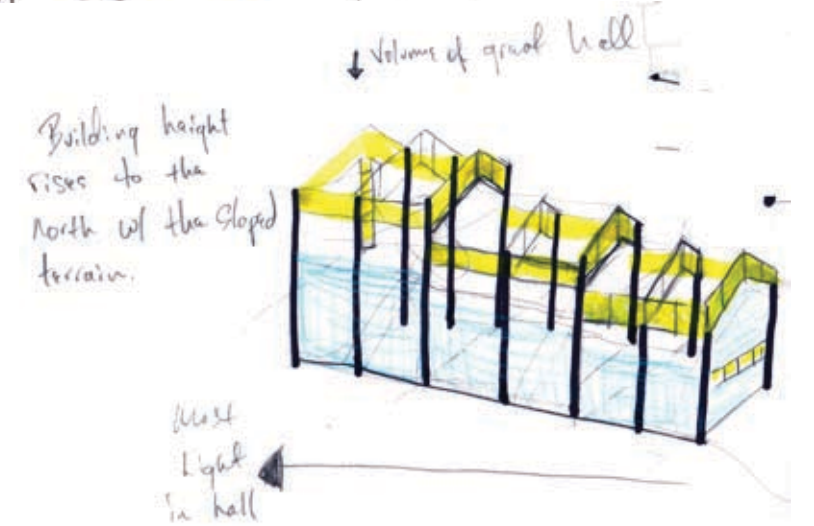 Volume of great hall
Building height
rises to the
north w/ the sloped
terrain.
Most
Light
in hall